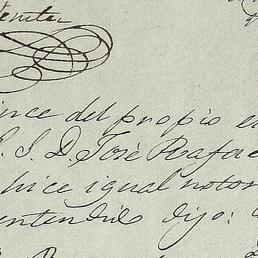 del propio
S. D. José Rafae
hice igual notor
entendido dijo: